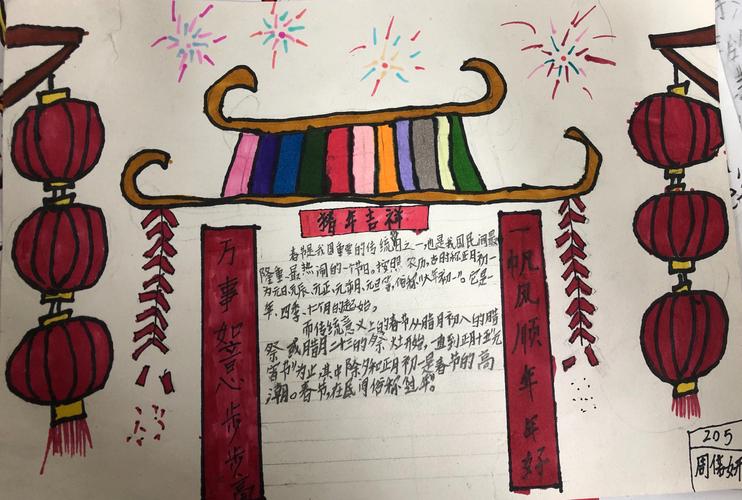 猪年吉祥
一帆风顺年年好
万事如意步步高
春节是我国重要的传统节之一也是我国民间最
隆重最热闹的一个节日。按照农历,古时称正月初一
为元日元辰、元正、元朔、元旦等,俗称"大年初一"。它是一
年、四季、十二个月的起始。
而传统意义上的春节从腊月初八的腊
祭或腊月二十三的祭灶开始,直到正月十五"元
宵节"为止,其中除夕和正月初一是春节的高
潮。春节,在民间俗称过年。
205
周倩妍